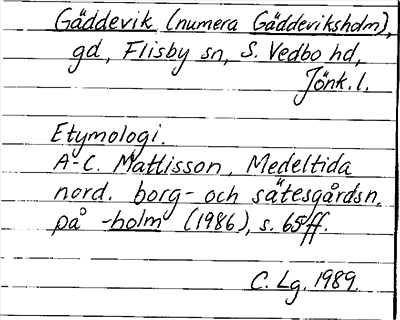 Gäddevik (numera Gäddeviksholm),
gd, Flisby sn, S. Vedbo hd,
Jönk. l.
Etymologi.
A-C. Mattisson, Medeltida
nord. borg- och sätesgårdsn.
på -holm (1986), s. 65ff.
C. Lg. 1989.